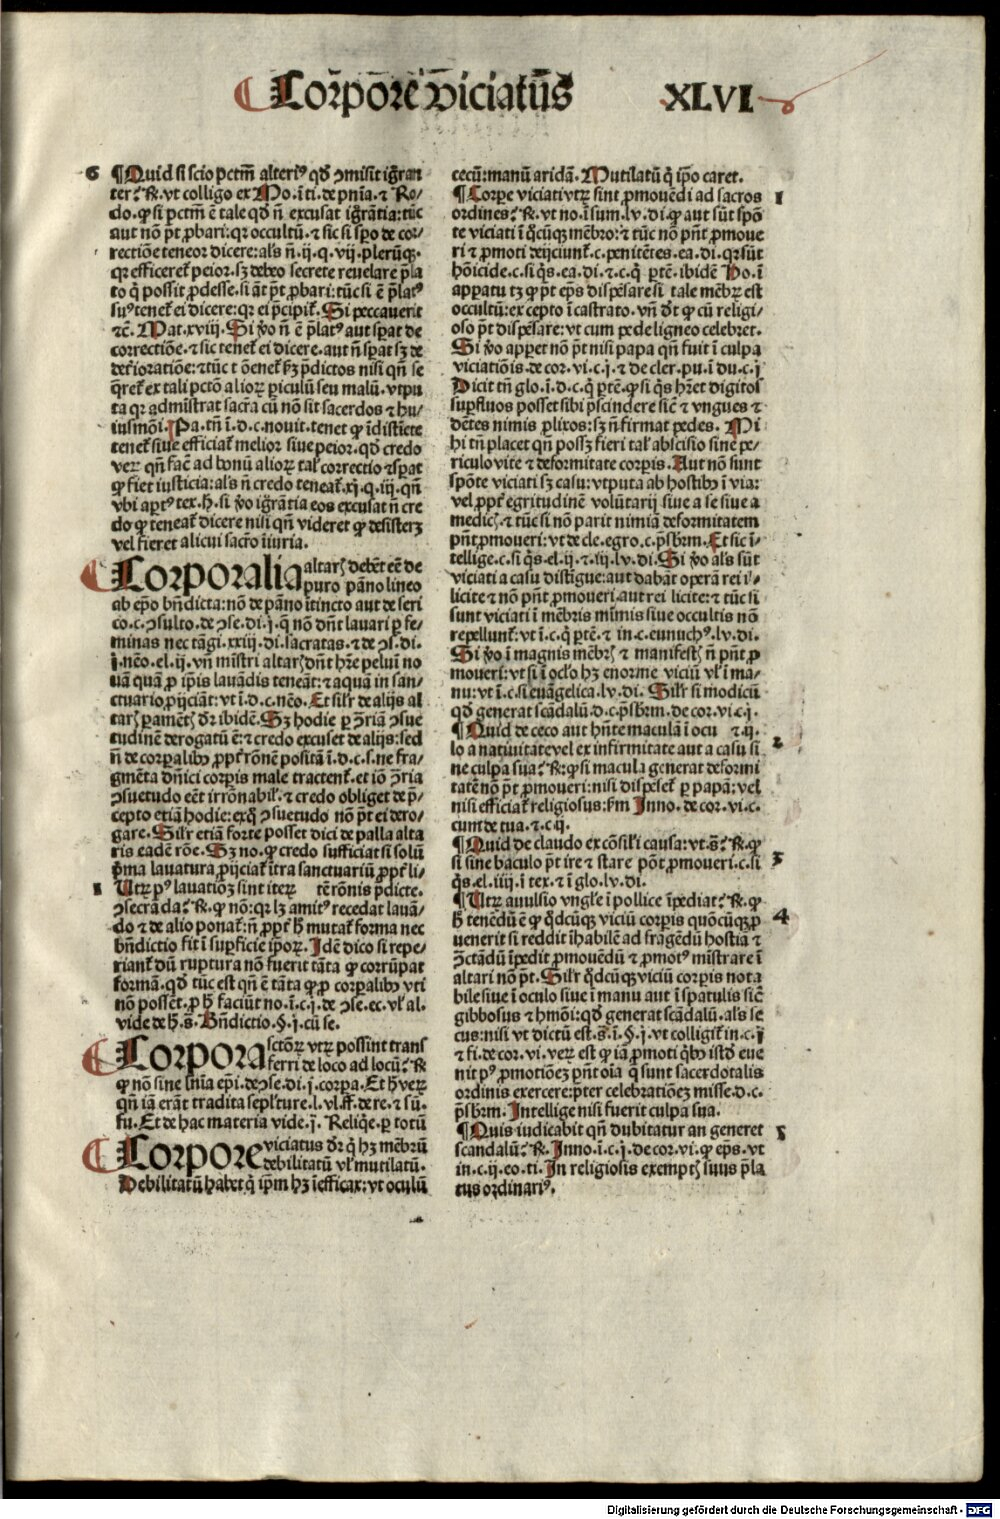 Corpore viciatus XLVI
6 ¶Quid si scio pctm̄ alteriꝰ qd̓ ꝯmisit igñran
ter? R̃. vt colligo ex Mo. ī ti. de pn̄ia. ⁊ Ro/
do. ꝙ si pctm̄ ē tale qd̓ n̄ excusat igñrātia: tūc
aut nō pōt ꝓbari: qꝛ occultū. ⁊ sic si spō de cor/
rectiōe teneor dicere: al's n̄. ij. q. vij. pleruqꝫ.
qꝛ efficereť peior. sꝫ debeo secrete reuelare p̄la
to q̇ possit ꝓdesse. si āt pōt ꝓbari: tūc si ē p̄latꝰ
suꝰ teneť ei dicere: qꝛ ei p̄cipiť. Si peccauerit
⁊c̄. Mat. xviij. Si v̄o n̄ ē p̄latꝰ aut spat de
correctiōe. ⁊ sic teneť ei dicere. aut n̄ spat sꝫ de
det̓ioratiōe: ⁊ tūc
q̄reť ex tali pctō alioꝝ piculū seu malū. vtpu
ta qꝛ admīstrat sacr̄a cū nō sit sacerdos ⁊ hu/
iusmōi. Pa. tn̄ ī. d. c. nouit. tenet ꝙ īdistīcte
teneť siue efficiať melior siue peior. qd̓ credo
veꝝ qn̄ fac̄ ad bonū alioꝝ tal' correctio ⁊ spat
ꝙ fiet iusticia: al's n̄ credo teneať. xj. q. iij. qn̄
vbi aptꝰ tex. h̄. si v̄o igñrātia eos excusat n̄ cre
do ꝙ teneať dicere nisi qn̄ videret ꝙ desisteret
vel fieret alicui sacr̄o iniuria.
Corporalia altarꝭ debēt eē de
puro pāno lineo
ab ep̄o bn̄dicta: nō de pāno ītincto aut de seri
co. c. ꝯsulto. de ꝯse. di. j. q̄ nō dn̄t lauari p fe/
minas nec tāgi. xxiij. di. sacratas. ⁊ de ꝯs. di.
j. nēo. el. ij. vn̄ mīstri altarꝭ dn̄t h̄re peluim no
uā quā p ip̄is lauādis teneāt: ⁊ aquā in san/
ctuario ꝓijciāt: vt ī. d. c. nēo. Et sil'r de alijs al
tarꝭ paramētꝭ dr̄ ibidē. Sꝫ hodie p ꝯr̄iā ꝯsue
tudinē derogatū ē: ⁊ credo excuset de alijs: sed
n̄ de corpalibꝰ ꝓpť rōnem positā ī. d. c. s. ne fra/
gmēta dn̄ici corpis male tractenť. ⁊ iō ꝯr̄ia
ꝯsuetudo eēt irrōnabil'. ⁊ credo obliget de p̄/
cepto etiā hodie: ex q̇ ꝯsuetudo nō pōt ei dero/
gare. Sil'r etiā forte posset dici de palla alta
ris eadē rōe. Sꝫ no. ꝙ credo sufficiat si solū
p̄ma lauatura ꝓijciať ītra sanctuariū ꝓpť li/
1 Vtꝝ pꝰ lauatiōꝫ sint iteꝝ tērōnis p̄dicte.
ꝯsecrāda? R̃. ꝙ nō: qꝛ lꝫ amitꝰ recedat lauā/
do ⁊ de alio ponať: n̄ ꝓpť h̄ mutať forma nec
bn̄dictio fit ī supficie ip̄oꝝ. Idē dico si repe/
rianť dū ruptura nō fuerit tāta ꝙ corrūpat
formā. qd̓ tūc est qn̄ ē tāta ꝙ p corpalibꝰ vti
nō possēt. p h̄ faciūt no. ī. c. j. de ꝯse. ec. vl' al.
vide de h̄. s̄. Bn̄dictio. §. j. cū se.
Corpora sctōꝝ vtꝝ possint trans
ferri de loco ad locū? R̃
ꝙ nō sine lnīa ep̄i. de ꝯse. di. j. corpa. Et h̄ veꝝ
qn̄ iā erāt tradita sepl'ture. l. vl. ff. de re. ⁊ sū.
fu. Et de hac materia vide. j. Reliqe̓. p totū
Corpore viciatus dr̄ q̇ hꝫ mēbrū
debilitatū vl' mutilatū.
Debilitatū habet q̇ ip̄m hꝫ īefficax: vt oculū
cecū: manū aridā. Mutilatū q̇ ip̄o caret.
¶Corpe viciati vtꝝ sint ꝓmouēdi ad sacros 1
ordines? R̃. vt no. ī sum. lv. di. ꝙ aut sūt spō
te viciati ī q̇cūqꝫ mēbro: ⁊ tūc nō pn̄t ꝓmoue
ri ⁊ ꝓmoti deijciunť. c. penitētes. ea. di. qꝛ sūt
hōicide. c. si q̇s. ea. di. ⁊. c. q̇ ptē. ibidē Ho. ī
apparatu tꝫ ꝙ pōt ep̄s dispēsare si tale mēbꝝ est
occultū: excepto ī castrato. vn̄ dr̄t ꝙ cū religi/
oso pōt dispēsare: vt cum pede ligneo celebret.
Si v̄o apparet nō pōt nisi papa qn̄ fuit ī culpa
viciatiōis. de cor. vi. c. j. ⁊ de cler. pu. ī du. c. j
Dicit tn̄ glo. ī. d. c. q̇ ptē. ꝙ si q̇s hr̄et digitos
supfluos posset sibi p̄scindere sic̄ ⁊ vngues ⁊
dētes nimis plixos: sꝫ n̄ firmat pedes. Mi
hi tn̄ placet qn̄ possꝫ fieri tal' abscisio sine pe/
riculo vite ⁊ deformitate corpis. Aut nō sunt
spōte viciati sꝫ casu: vtputa ab hostibꝰ ī via:
vel ꝓpť egritudinē volūtarij siue a se siue a
medicꝭ. ⁊ tūc si nō parit nimiā deformitatem
pn̄t ꝓmoueri: vt de cle. egro. c. p̄sbm̄. Et sic ī/
tellige. c. si q̇s. el. ij. ⁊. iij. lv. di. Si v̄o al's sūt
viciati a casu distīgue: aut dabāt operā rei il/
licite ⁊ nō pn̄t ꝓmoueri. aut rei licite: ⁊ tūc si
sunt viciati ī mēbris mīmis siue occultis nō
repellunť: vt ī. c. q̇ ptē. ⁊ in. c. eunuchꝰ. lv. di.
Si v̄o ī magnis mēbrꝭ ⁊ manifestꝭ n̄ pn̄t ꝓ
moueri: vt si ī ocl'o hꝫ enorme viciū vl' ī ma/
nu: vt ī. c. si euāgelica. lv. di. Sil'r si modicū
qd̓ generat scādalū. d. c. p̄sbm̄. de cor. vi. c. j.
¶Quid de ceco aut hn̄te maculā ī ocu ⁊. ij. 2
lo a natiuitate vel ex infirmitate aut a casu si
ne culpa sua? R̃: ꝙ si macula generat deformi
tatē nō pōt ꝓmoueri: nisi dispēseť p papā: vel
nisi efficiať religiosus: fm̄ Inno. de cor. vi. c.
cum de tua. ⁊. c. ij.
¶Quid de claudo ex cōsil'i causa: vt. s̄.? R̃. ꝙ
si sine baculo pōt ire ⁊ stare pōt ꝓmoueri. c. si 3
q̇s. el. iiij. ī tex. ⁊ ī glo. lv. di.
¶Vtꝝ auulsio vngl'e ī pollice īpediat? R̃. ꝙ
h̄ tenēdū ē ꝙ q̇dcūqꝫ viciū corpis quōcūqꝫ p 4
uenerit si reddit īhabilē ad frāgēdū hostiā ⁊
ꝯctādū īpedit ꝓmouēdū ⁊ ꝓmotꝰ mīstrare ī
altari nō pōt. Sil'r q̇dcūqꝫ viciū corpis nota
bile siue ī oculo siue ī manu aut ī spatulis sic̄
gibbosus ⁊ hm̄oi: qd̓ generat scādalū. al's se
cus: nisi vt dictū est. s̄. ī. §. j. vt colligiť in. c. j
⁊ fi. de cor. vi. veꝝ est ꝙ iā ꝓmoti q̇bꝰ istd̓ eue
nit pꝰ ꝓmotiōeꝫ pn̄t oīa q̄ sunt sacerdotalis
ordinis exercere: p̄ter celebratiōeꝫ misse. d. c.
p̄sbm̄. Intellige nisi fuerit culpa sua.
¶Quis iudicabit qn̄ dubitatur an generet 5
scandalū? R̃. Inno. ī. c. j. de cor. vi. ꝙ ep̄s. vt
in. c. ij. eo. ti. In religiosis exemptꝭ suus p̄la
tus ordinariꝰ.
Digitalisierung gefördert durch die Deutsche Forschungsgemeinschaft - DFG